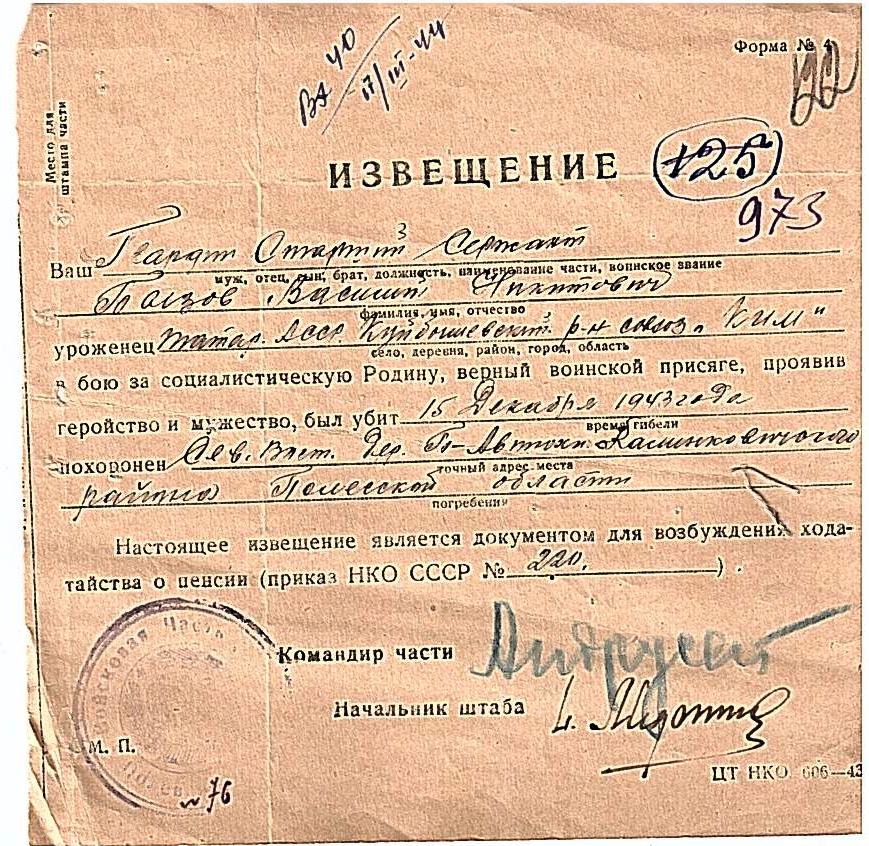 Вх 40
17/III-44
Форма № 4
122
Место для
штампа части
ИЗВЕЩЕНИЕ 125
973
Ваш Гвардии Старший Сержант
муж, отец, сын, брат, должность, наименование части, воинское звание
Василий Никитович
фамилия, имя, отчество
уроженец Татар. АССР Куйбышевский р-н союз „Ким"
село, деревня, район, город, область
в бою за социалистическую Родину, верный воинской присяге, проявив
геройство и мужество, был убит 15 Декабря 1943 года
время гибели
похоронен Сев. Вост. Дер. Калинковичского
точный адрес места
района Полесской области
погребения
Настоящее извещение является документом для возбуждения хода-
тайства о пенсии (приказ НКО СССР № 220.).
Войсковая Часть
Командир части
Начальник штаба
М. П.
№ 76
ЦТ НКО 606—43